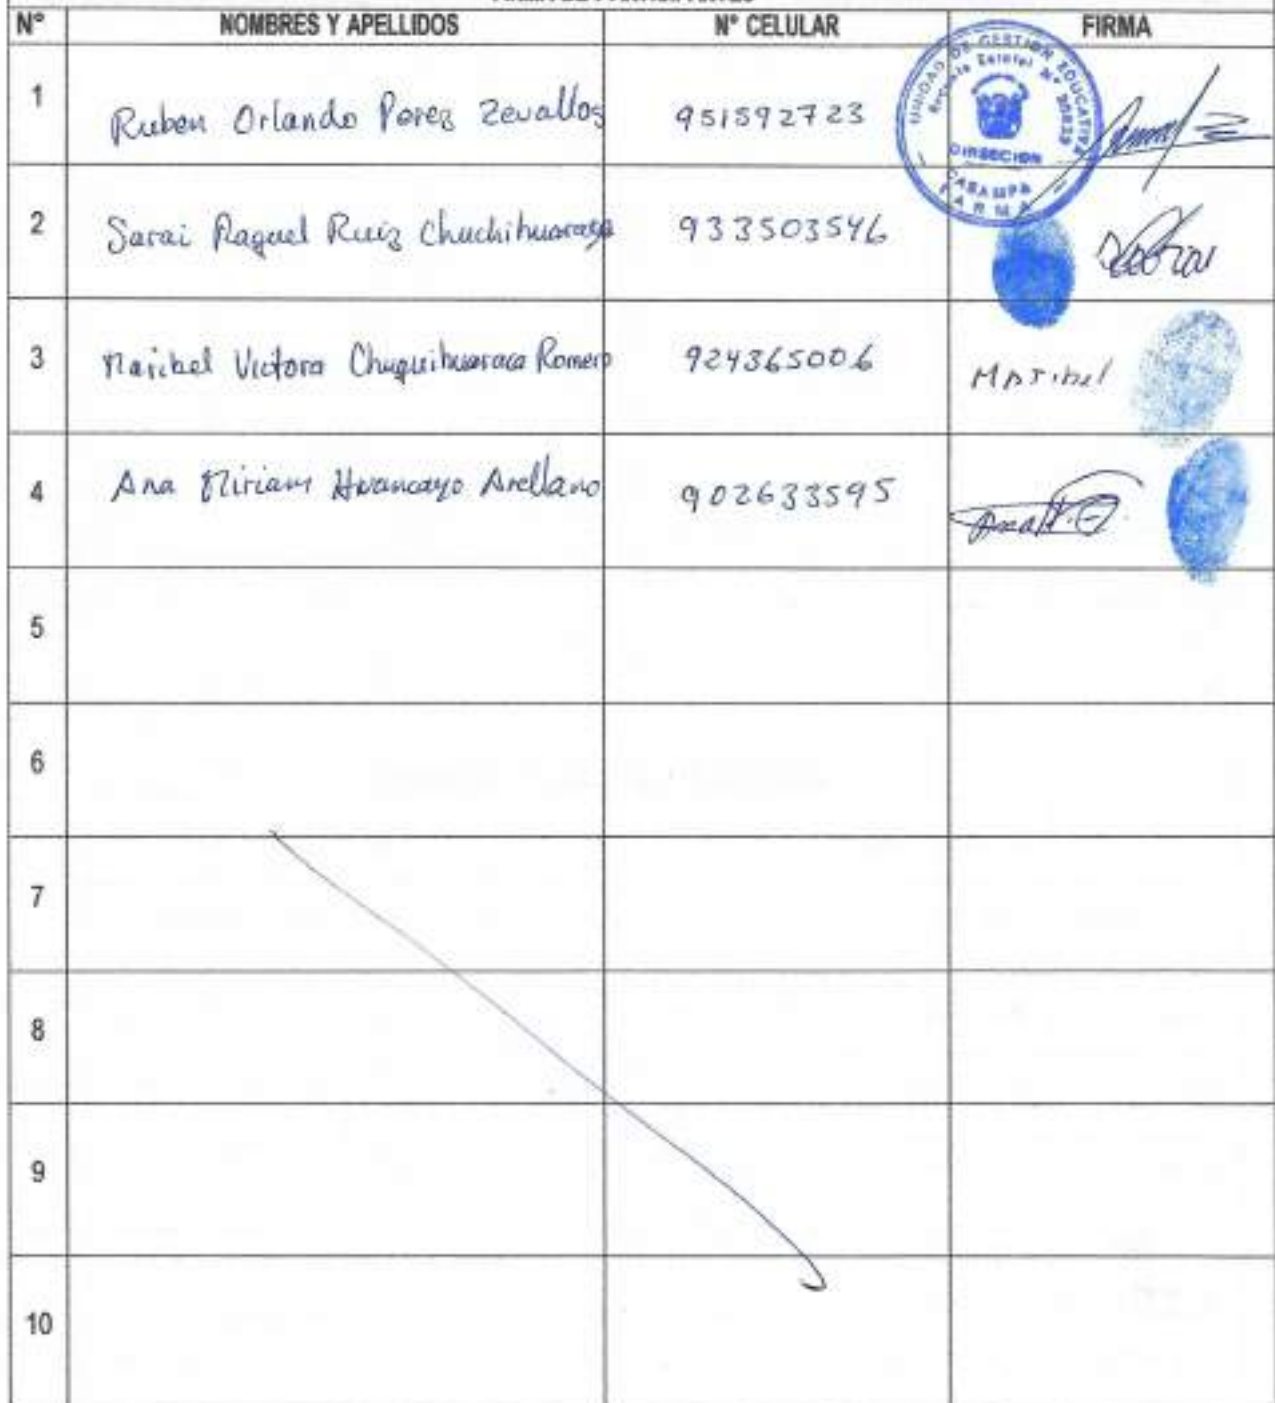 N° NOMBRES Y APELLIDOS N° CELULAR FIRMA
1 Ruben Orlando Perez Zevallos 951592723
UNIDAD DE GESTION EDUCATIVA
Escuela Estatal N°
DIRECCION
CASAMPA
TARMA
2 Sarai Raquel Ruiz Chuchihuaraca 933503546
3 Maribel Victora Chuquihuaraca Romero 924365006 Maribel
4 Ana Miriam Huancayo Arellano 902633595
5
6
7
8
9
10